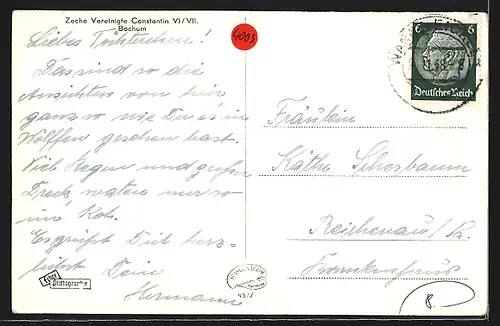 Zeche Vereinigte Constantin VI/VII.
Bochum
Liebes
Das sind so die
Ansichten von hier
ganz so wie Du es in
Wolffen gesehen hast.
Viel Regen und großen
Dreck, waten nur so
im Kot.
Es grüßt Dich herz-
lichst Dein
Hermann
4003
6 6
Deutsches Reich
Fräulein
Käthe Scherbaum
Reichenau/Sa.
Krankenhaus
Echte
Photographie
4577
8.